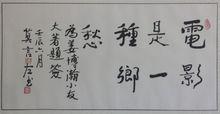 電影
是一
種鄉
愁
為姜博瀚小友
大著題簽
壬辰六月
莫言左書